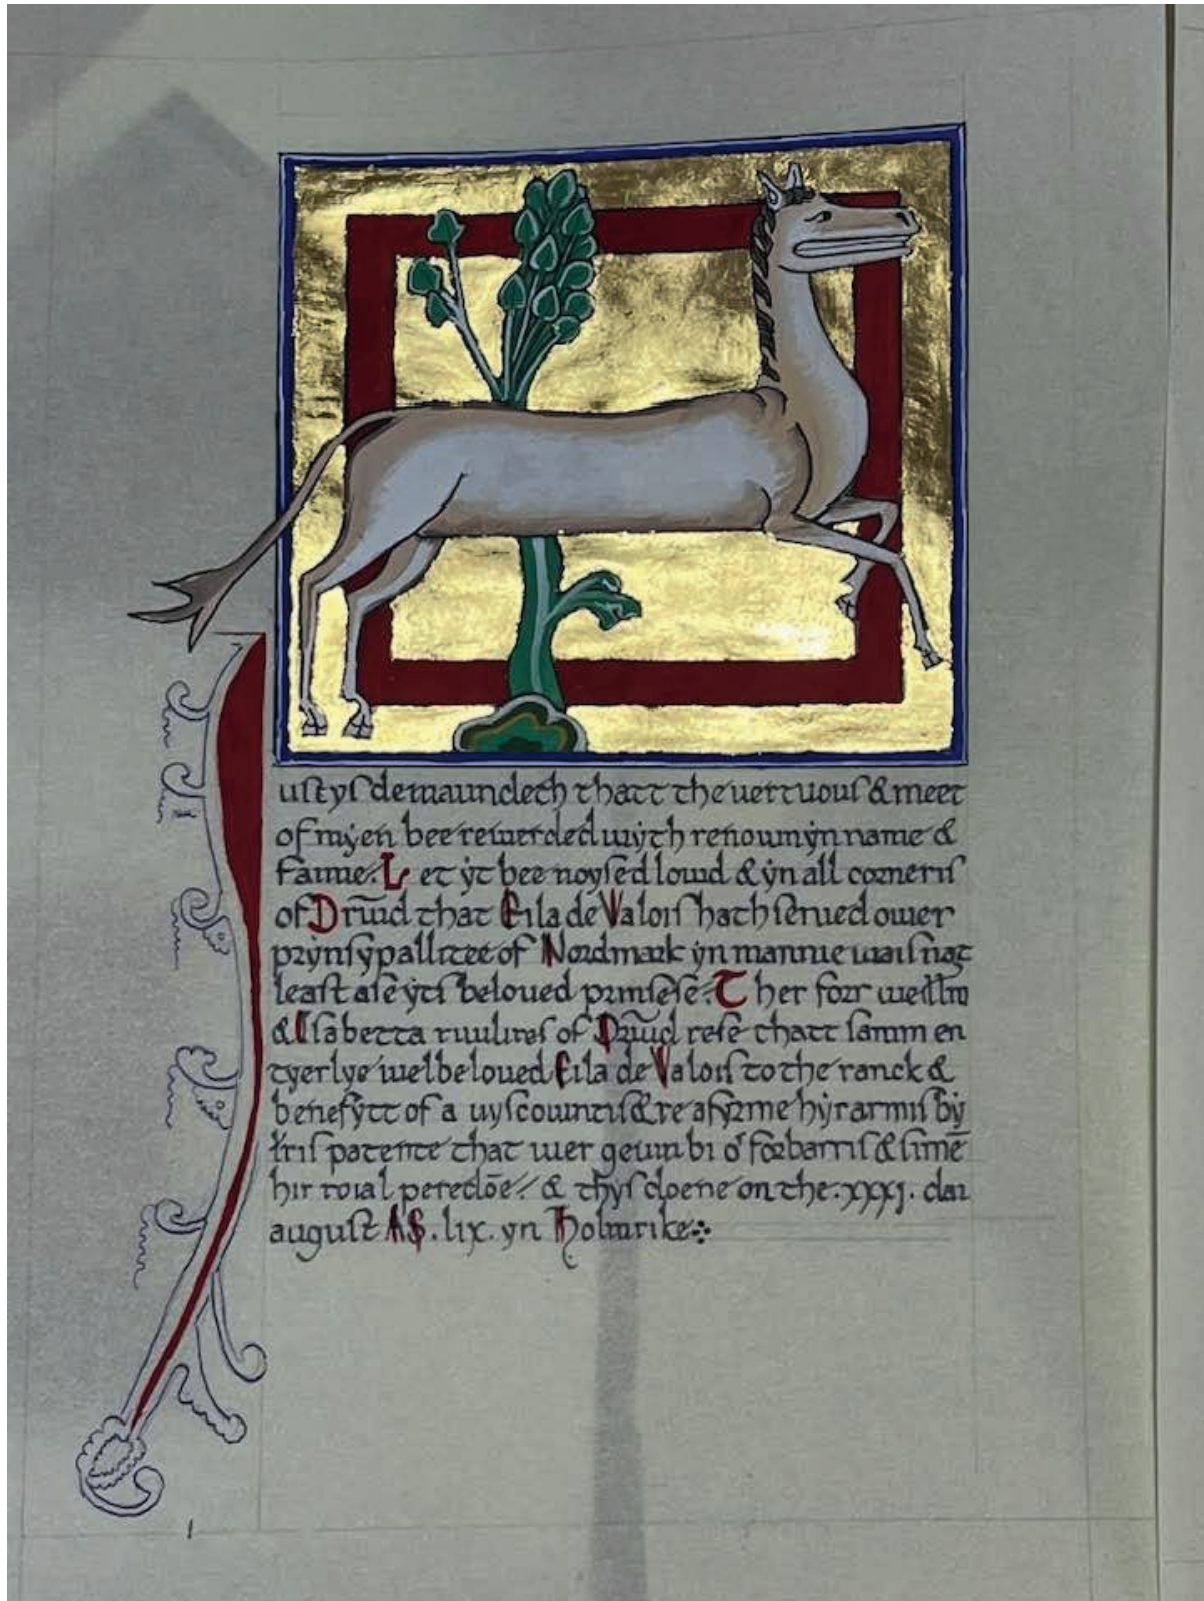 Justys demaundeth thatt the uertuous & meet
of myen bee rewerded wyth renoum yn name &
fame. Let yt bee noysed lowd & yn all corneris
of Drūd that Eila de Valois hath serued ower
prynsypallitee of Nordmark yn mannie wais nat
least ase yts beloved prinsese. Ther forr
& Isabetta ruulires of Drūd rese thatt samm en
tyerlye welbeloued Eila de Valois to the ranck &
benefytt of a uyscountis & reafyrme hyr armis by
patente that wer geuin bi oʳ forbarris &
hir roial peredōe. & thys doene on the .xxxj. dai
august AS. lix. yn Holmrike